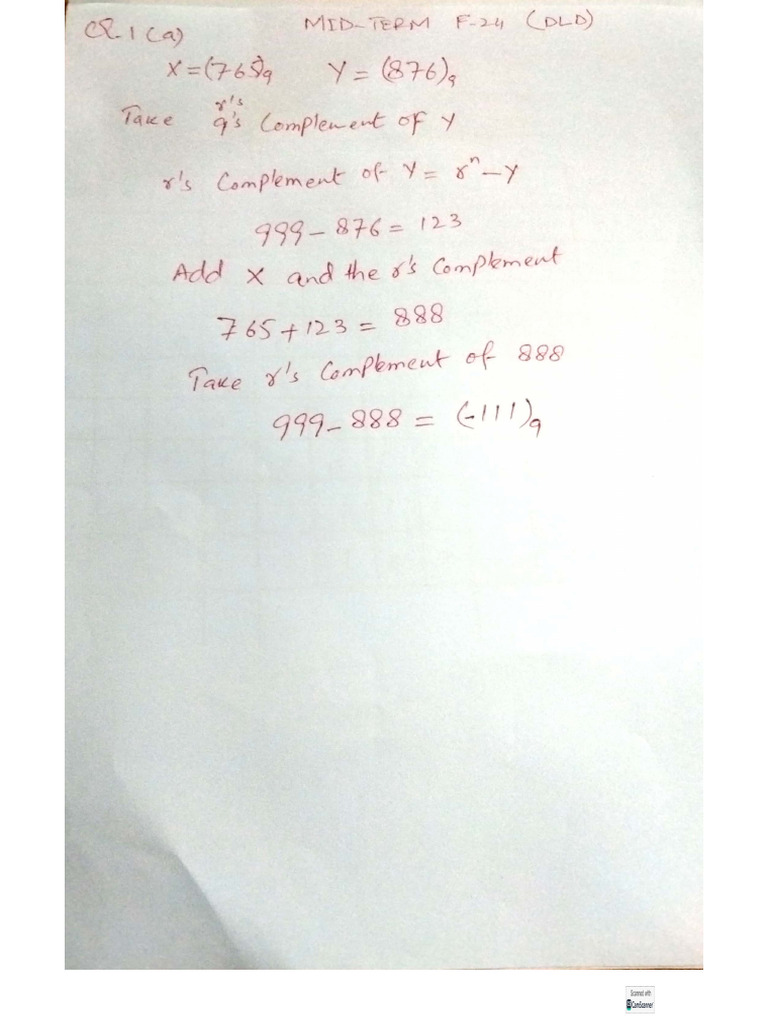 Q.1 (a)
MID-TERM F-24 (DLD)
X = (765)9 Y = (876)9
r's
Take 9's Complement of Y
r's Complement of Y = r^n - Y
999 - 876 = 123
Add X and the r's Complement
765 + 123 = 888
Take r's Complement of 888
999 - 888 = (-111)9
Scanned with
CamScanner